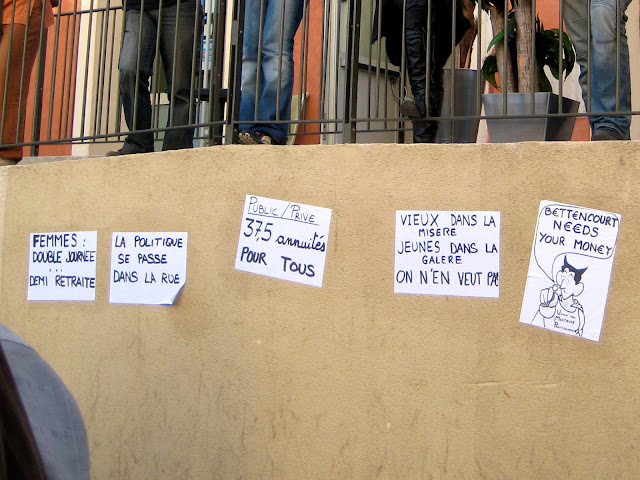 FEMMES :
DOUBLE JOURNÉE
...
DEMI RETRAITE
LA POLITIQUE
SE PASSE
DANS LA RUE
PUBLIC/PRIVE
37,5 annuités
POUR TOUS
VIEUX DANS LA
MISERE
JEUNES DANS LA
GALERE
ON N'EN VEUT PAS
BETTENCOURT
NEEDS
YOUR MONEY